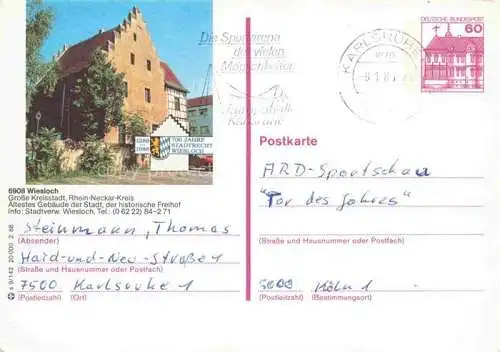 Die Sportarena
der vielen
Möglichkeiten
KARLSRUHE
DEUTSCHE BUNDESPOST
60
1288
1988
700 JAHRE
STADTRECHT
WIESLOCH
Postkarte
6908 Wiesloch
Große Kreisstadt, Rhein-Neckar-Kreis
Ältestes Gebäude der Stadt, der historische Freihof
Info: Stadtverw. Wiesloch, Tel.: (0 62 22) 84-2 71
ARD-Sportschau
"Tor des Jahres"
Steinmann, Thomas
(Absender)
(Straße und Hausnummer oder Postfach)
Haid-und-Neu-Straße 1
(Straße und Hausnummer oder Postfach)
7500 Karlsruhe 1
5000 Köln 1
(Postleitzahl) (Ort)
(Postleitzahl) (Bestimmungsort)